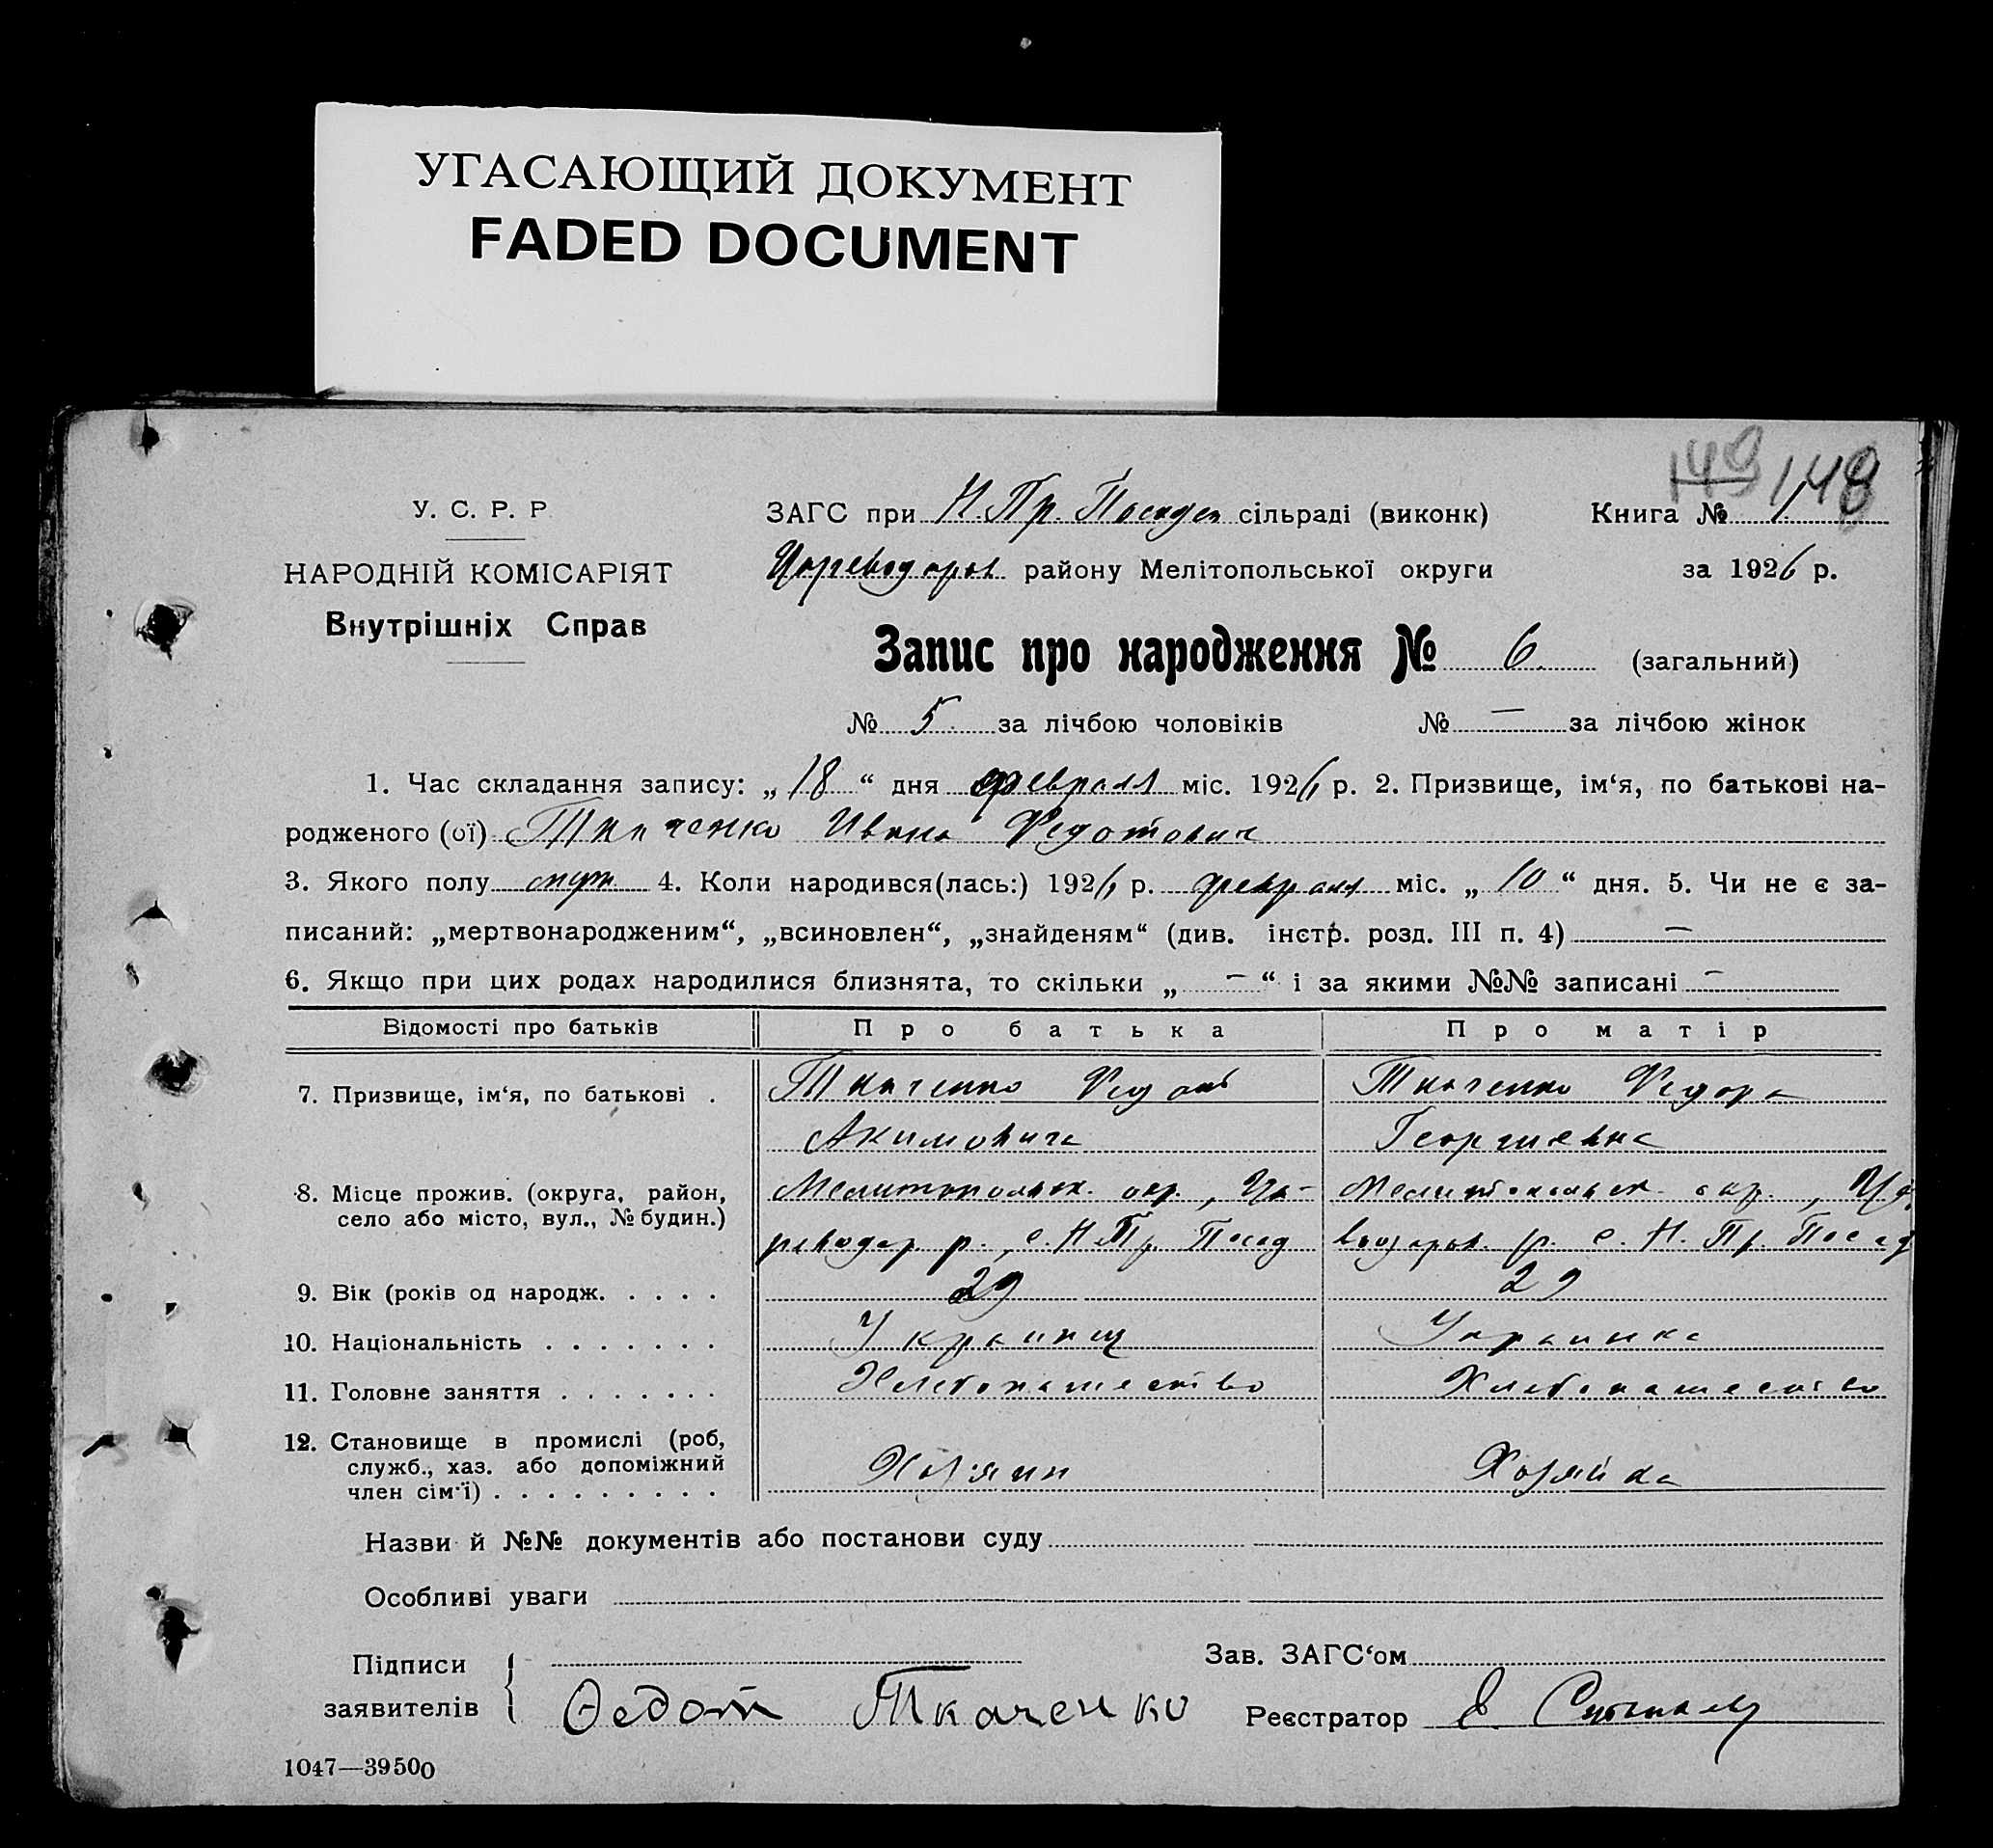 УГАСАЮЩИЙ ДОКУМЕНТ
FADED DOCUMENT
149 148
У. С. Р. Р
НАРОДНІЙ КОМІСАРІЯТ
Внутрішніх Справ
ЗАГС при Н. Пр. Посаде сільраді (виконк) Книга № 1
району Мелітопольської округи за 1926 р.
Запис про народження № 6. (загальний)
№ 5 за лічбою чоловіків № — за лічбою жінок
1. Час складання запису: „ 18 “ дня февраля міс. 1926 р. 2. Призвище, ім‘я, по батькові на-
родженого (ої) Ткаченко Иван Федотович
3. Якого полу муж 4. Коли народився(лась:) 1926 р. февраля міс. „ 10 “ дня. 5. Чи не є за-
писаний: „мертвонародженим“, „всиновлен“, „знайденям“ (див. інєтр. розд. III п. 4) —
6. Якщо при цих родах народилися близнята, то скільки „ — “ і за якими №№ записані —
Відомості про батьків Про батька Про матір
7. Призвище, ім‘я, по батькові . Ткаченко Федот Ткаченко Федора
Акимович Георгиевна
8. Місце прожив. (округа, район, село або місто, вул., № будин.) Мелитопольск. окр., Ца- Мелитопольск. окр.,
реводар. р. с. Н. Пр. Посад р. с. Н. Пр. Посад
9. Вік (років од народж. . . . . 29 29
10. Національність . . . . . . . Украинец Украинка
11. Головне заняття . . . . . . . Хлебопашество Хлебопашество
12. Становище в промислі (роб, служб., хаз. або допоміжний член сім‘ї) . . . . . . . . . Хозяин Хозяйка
Назви й №№ документів або постанови суду
Особливі уваги
Підписи заявителів Зав. ЗАГС‘ом
Ѳедот Ткаченко Реєстратор
1047—39500